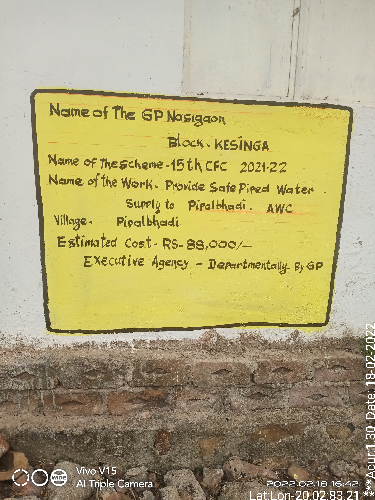 Name of The GP Nasigaon
Block - KESINGA
Name of Thescheme - 15th CFC 2021-22
Name of the Work - Provide Safe Piped Water
Supply to Pipalbhadi. AWC
Village - Pipalbhadi
Estimated Cost - RS- 88,000/-
Executive Agency - Departmentally By GP
Vivo V15
AI Triple Camera
2022.02.18 16:42
Lat:Lon-20.02.83.21
**Acur:1.30 Date: 18-02-2022